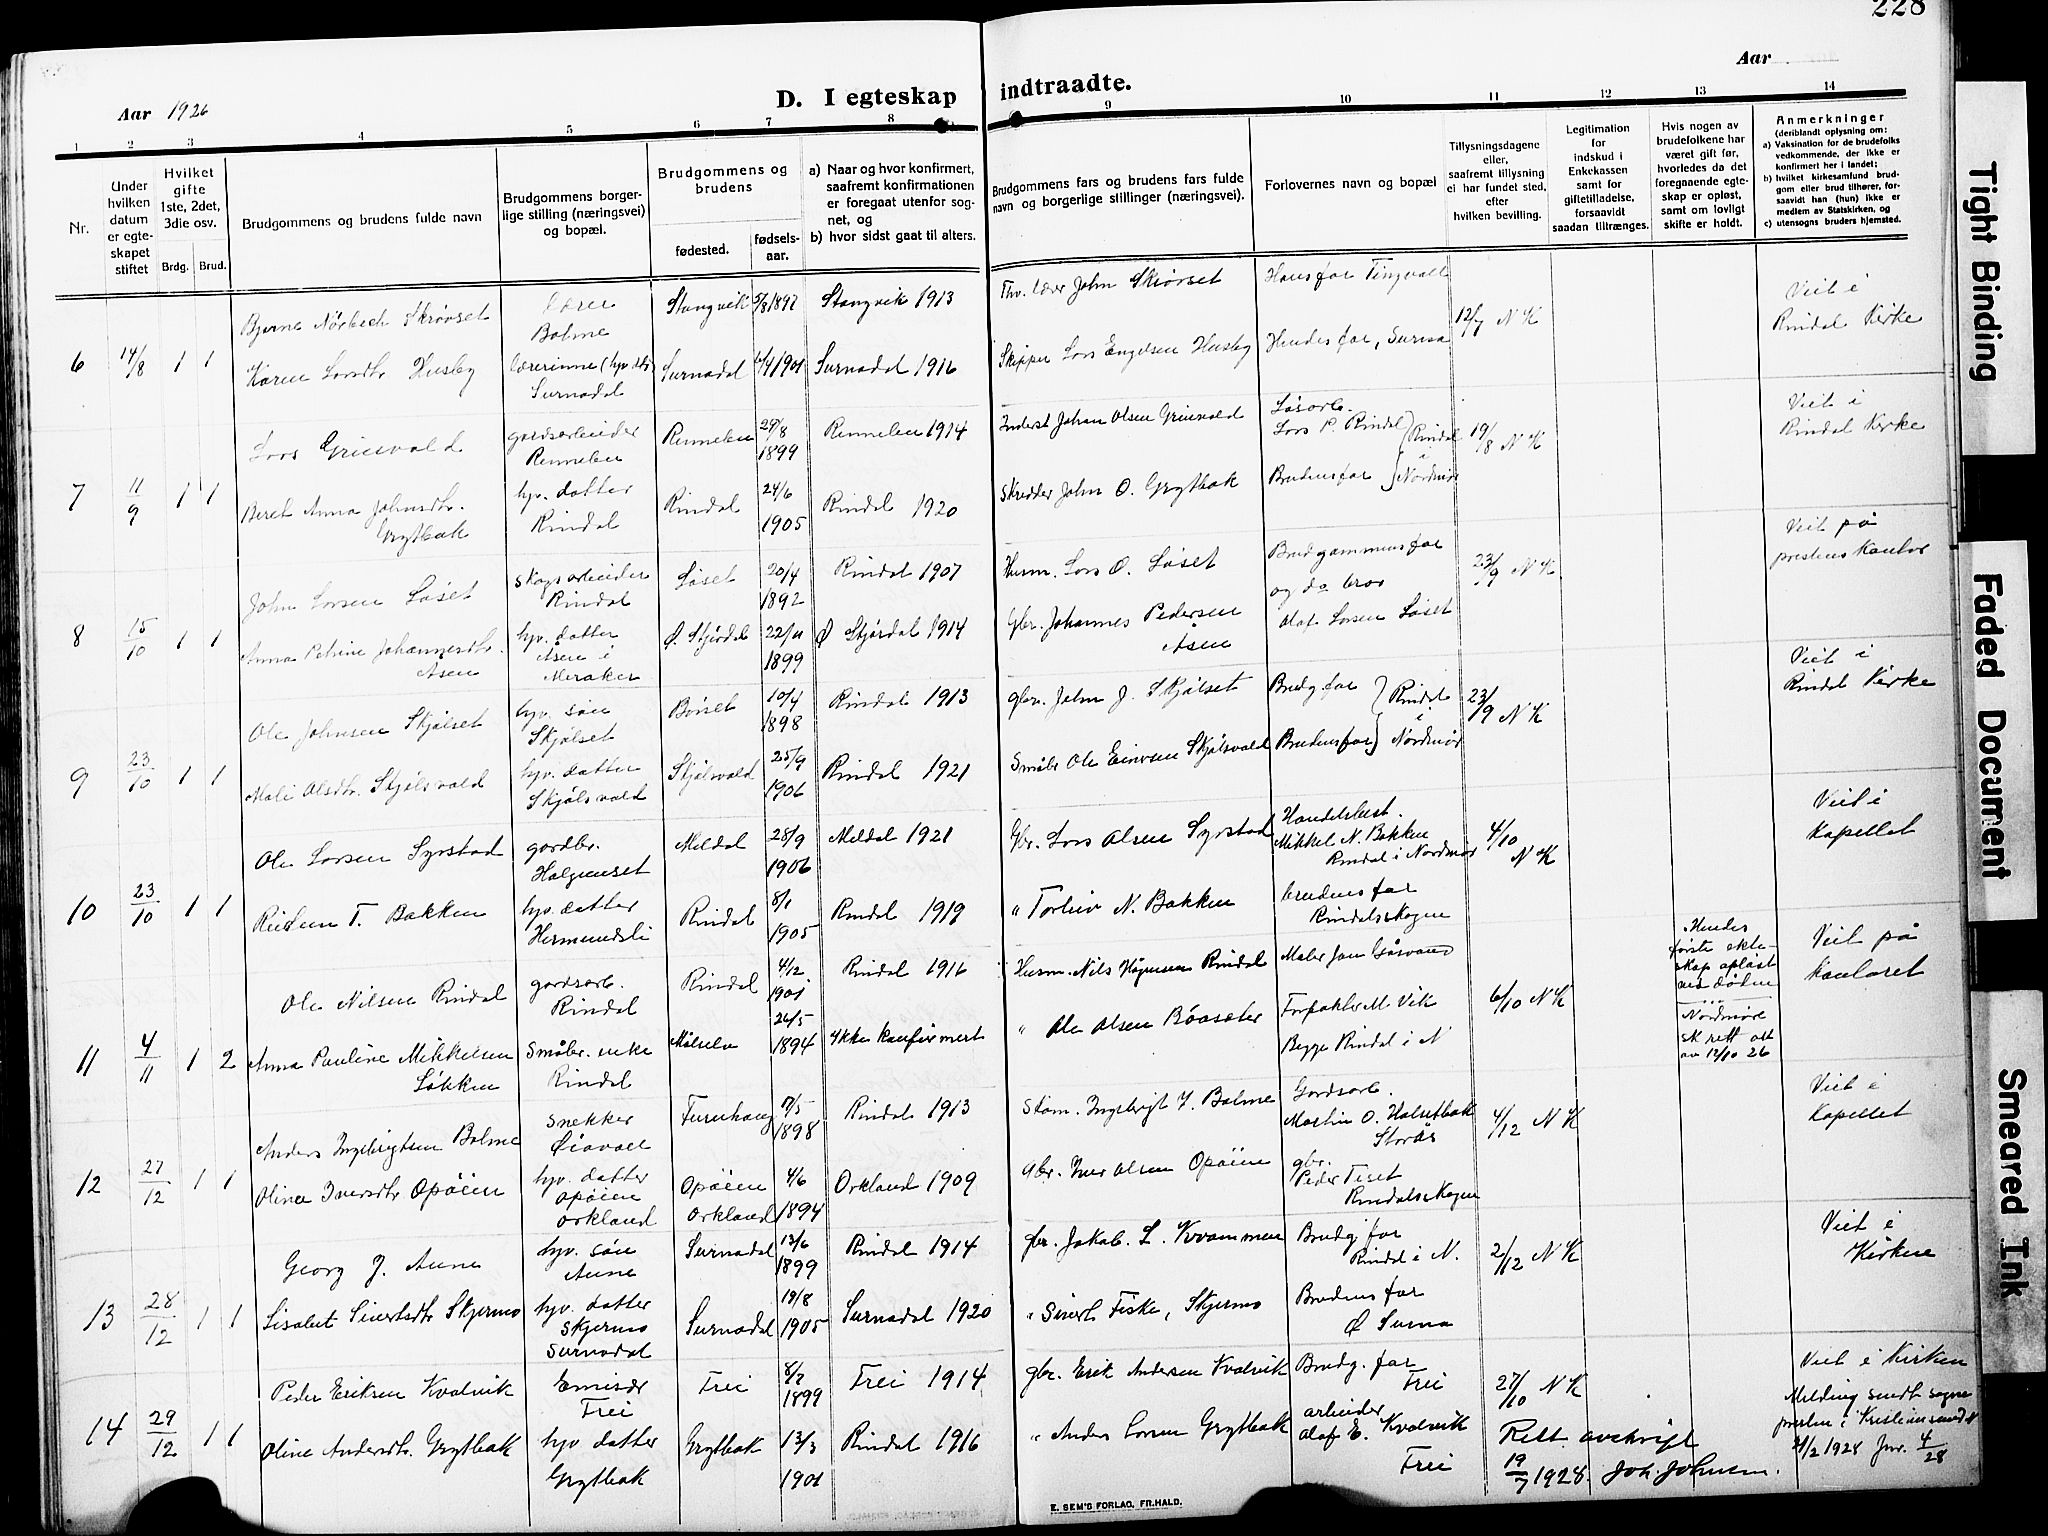 228
Aar 1926
D. I egteskap indtraadte.
Aar
1 2 3 4 5 6 7 8 9 10 11 12 13 14
Nr.
Under hvilken datum er egteskapet stiftet
Hvilket gifte 1ste, 2det, 3die osv.
Brdg. Brud.
Brudgommens og brudens fulde navn
Brudgommens borgerlige stilling (næringsvei) og bopæl.
Brudgommens og brudens
fødested.
fødselsaar.
a) Naar og hvor konfirmert, saafremt konfirmationen er foregaat utenfor sognet, og
b) hvor sidst gaat til alters.
Brudgommens fars og brudens fars fulde navn og borgerlige stillinger (næringsvei).
Forlovernes navn og bopæl
Tillysningsdagene eller, saafremt tillysning ei har fundet sted, efter hvilken bevilling.
Legitimation for indskud i Enkekassen samt for giftetilladelse, forsaavidt saadan tiltrænges.
Hvis nogen av brudefolkene har været gift før, hvorledes da det foregaaende egteskap er opløst, samt om lovligt skifte er holdt.
Anmerkninger
(deriblandt oplysning om:
a) Vaksination for de brudefolks vedkommende, der ikke er konfirmert her i landet;
b) hvilket kirkesamfund brudgom eller brud tilhører, forsaavidt han (hun) ikke er medlem av Statskirken, og
c) utensogns bruders hjemsted.
6 14/8 1 1
Bjarne Nørbech Skrøvset
lærer Bolme
Stangvik 5/8 1892
Stangvik 1913
Thv. lærer John Skrøvset
Hans far Tingvoll
12/7 NK
Viet i Rindal Kirke
Karen Larsdtr Husby
lærerinne (hjv. dtr) Surnadal
Surnadal 6/9 1901
Surnadal 1916
Skipper Lars Engelsen Husby
Hendes far, Surna
7 11/9 1 1
Lars Griesvald
gardsarbeider Rennebu
Rennebu 29/8 1899
Rennebu 1914
Inderst Johan Olsen Griesvald
Løsarb. Lars P. Rindal
Rindal i Nordmør
19/8 NK
Viet i Rindal Kirke
Beret Anna Johnsdtr. Grytbak
hjv. datter Rindal
Rindal 24/6 1905
Rindal 1920
Skredder John O. Grytbak
Brudens far
8 15/10 1 1
John Larsen Løset
skogsarbeider Rindal
Løset 20/4 1892
Rindal 1907
Husm. Lars O. Løset
Brudgommens far og do bror Olaf Larsen Løset
23/9 NK
Viet på prestens kontor
Anna Petrine Johannesdtr. Åsen
hjv. datter Åsen i Meraker
Ø. Stjørdal 22/11 1899
Ø Stjørdal 1914
Gbr. Johannes Pedersen Åsen
9 23/10 1 1
Ole Johnsen Skjølset
hjv. søn Skjølset
Bøiset 10/4 1898
Rindal 1913
gbr. John J. Skjølset
Brudg far
Rindal i Nordmør
23/9 NK
Viet i Rindal Kirke
Mali Olsdtr. Skjølsvold
hjv. datter Skjølsvold
Skjølsvold 25/9 1906
Rindal 1921
Småbr Ole Einarsen Skjølsvold
Brudens far
10 23/10 1 1
Ole Larsen Syrstad
gardbr. Halgunset
Meldal 28/9 1906
Meldal 1921
Gbr. Lars Olsen Syrstad
Handelsbest. Mikkel N. Bakken Rindal i Nordmør
4/10 NK
Viet i Kapellet
T. Bakken
hjv. datter Hermundsli
Rindal 8/1 1905
Rindal 1919
" Torleiv N. Bakken
brudens far Rindalsskogen
11 4/11 1 2
Ole Nilsen Rindal
gardsarb. Rindal
Rindal 4/12 1901
Rindal 1916
Husm. Nils Rindal
Maler Jon Gåsvand
6/10 NK
Hendes første ekteskap opløst ved døden
Nordmøre sk rett att av 12/10 26
Viet på kontoret
Anna Pauline Mikkelsen Løkken
Småbr. enke Rindal
Målselv 26/5 1894
Ikke konfirmert
" Ole Olsen Böasæter
Forpakter M Vik Begge Rindal i N
12 27/12 1 1
Anders Ingebrigtsen Bolme
snekker Øiavoll
Furuhaug 17/5 1898
Rindal 1913
Ingebrigt I. Bolme
Gardsarb. Martin O. Halsetbak Storås
4/12 NK
Viet i Kapellet
Oline Iversdtr Opøien
hjv. datter Opøien Orkland
Opøien Orkland 4/6 1894
Orkland 1909
Gbr. Iver Olsen Opøien
gbr. Peder Tiset Rindalsskogen
13 28/12 1 1
Georg J. Aune
hjv. søn Aune
Surnadal 13/6 1899
Rindal 1914
gbr. Jakob L. Kvammen
Brudg. far Rindal i N.
2/12 NK
Viet i Kirken
Lisabet Sivertsdtr Skjermo
hjv. datter Skjermo Surnadal
Surnadal 19/8 1905
Surnadal 1920
" Sivert Fiske, Skjermo
Brudens far Ø Surna
14 29/12 1 1
Peder Eriksen Kvalvik
Emisær Frei
Frei 8/2 1899
Frei 1914
gbr. Erik Andersen Kvalvik
Brudg. far Frei
27/10 NK
Viet i Kirken
Oline Andersdtr. Grytbak
hjv datter Grytbak
Grytbak 13/3 1901
Rindal 1916
" Anders Larsen Grytbak
arbeider Olaf E. Kvalvik Frei
Melding sendt sognepresten i Kristiansund N
21/2 1928 Jnr. 4/28
Rett avskrift
19/7 1928. Joh. Johnsen.
E. SEM'S FORLAG, FR.HALD.
Tight Binding
Faded Document
Smeared Ink